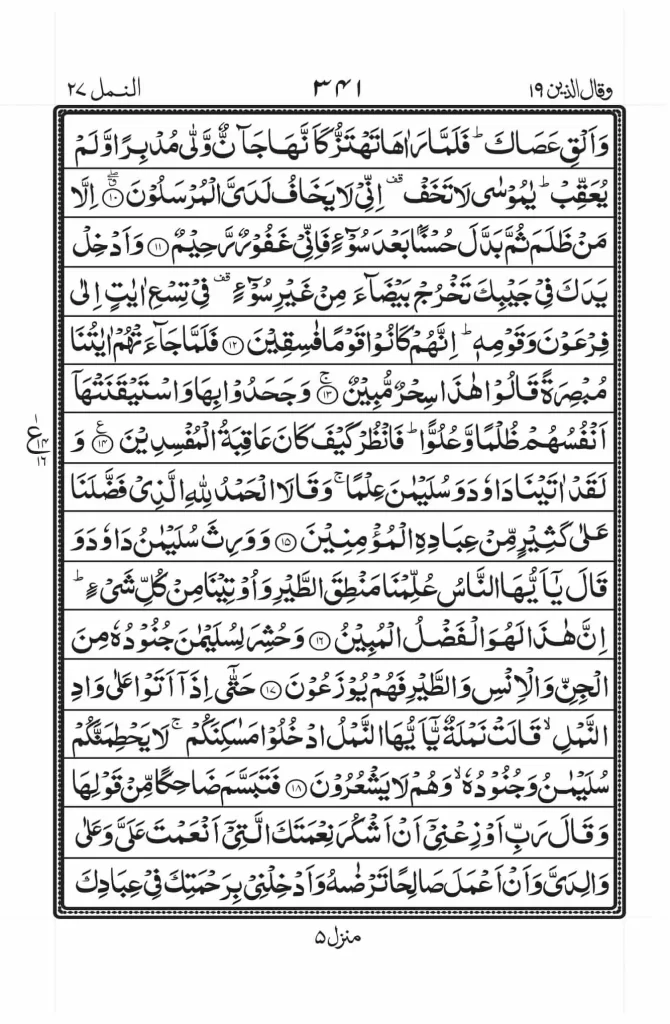 وقال الذین ۱۹ ۳۴۱ النمل ۲۷
وَاَلْقِ عَصَاكَ ؕ فَلَمَّا رَاٰهَا تَهْتَزُّ كَاَنَّهَا جَآنٌّ وَّلّٰی مُدْبِرًا وَّلَمْ
یُعَقِّبْ ؕ یٰمُوْسٰی لَا تَخَفْ قف اِنِّیْ لَا یَخَافُ لَدَیَّ الْمُرْسَلُوْنَ ۱۰ اِلَّا
مَنْ ظَلَمَ ثُمَّ بَدَّلَ حُسْنًۢا بَعْدَ سُوْٓءٍ فَاِنِّیْ غَفُوْرٌ رَّحِیْمٌ ۱۱ وَاَدْخِلْ
یَدَكَ فِیْ جَیْبِكَ تَخْرُجْ بَیْضَآءَ مِنْ غَیْرِ سُوْٓءٍ قف فِیْ تِسْعِ اٰیٰتٍ اِلٰی
فِرْعَوْنَ وَقَوْمِهٖ ؕ اِنَّهُمْ كَانُوْا قَوْمًا فٰسِقِیْنَ ۱۲ فَلَمَّا جَآءَتْهُمْ اٰیٰتُنَا
مُبْصِرَةً قَالُوْا هٰذَا سِحْرٌ مُّبِیْنٌ ۱۳ ۚ وَجَحَدُوْا بِهَا وَاسْتَیْقَنَتْهَاۤ
اَنْفُسُهُمْ ظُلْمًا وَّعُلُوًّا ؕ فَانْظُرْ كَیْفَ كَانَ عَاقِبَةُ الْمُفْسِدِیْنَ ۱۴ ع وَ
ع ۱۴ ۱۶
لَقَدْ اٰتَیْنَا دَاوٗدَ وَسُلَیْمٰنَ عِلْمًا ۚ وَقَالَا الْحَمْدُ لِلّٰهِ الَّذِیْ فَضَّلَنَا
عَلٰی كَثِیْرٍ مِّنْ عِبَادِهِ الْمُؤْمِنِیْنَ ۱۵ وَوَرِثَ سُلَیْمٰنُ دَاوٗدَ وَ
قَالَ یٰۤاَیُّهَا النَّاسُ عُلِّمْنَا مَنْطِقَ الطَّیْرِ وَاُوْتِیْنَا مِنْ كُلِّ شَیْءٍ ؕ
اِنَّ هٰذَا لَهُوَ الْفَضْلُ الْمُبِیْنُ ۱۶ وَحُشِرَ لِسُلَیْمٰنَ جُنُوْدُهٗ مِنَ
الْجِنِّ وَالْاِنْسِ وَالطَّیْرِ فَهُمْ یُوْزَعُوْنَ ۱۷ حَتّٰۤی اِذَاۤ اَتَوْا عَلٰی وَادِ
النَّمْلِ ۙ قَالَتْ نَمْلَةٌ یّٰۤاَیُّهَا النَّمْلُ ادْخُلُوْا مَسٰكِنَكُمْ ۚ لَا یَحْطِمَنَّكُمْ
سُلَیْمٰنُ وَجُنُوْدُهٗ ۙ وَهُمْ لَا یَشْعُرُوْنَ ۱۸ فَتَبَسَّمَ ضَاحِكًا مِّنْ قَوْلِهَا
وَقَالَ رَبِّ اَوْزِعْنِیْۤ اَنْ اَشْكُرَ نِعْمَتَكَ الَّتِیْۤ اَنْعَمْتَ عَلَیَّ وَعَلٰی
وَالِدَیَّ وَاَنْ اَعْمَلَ صَالِحًا تَرْضٰىهُ وَاَدْخِلْنِیْ بِرَحْمَتِكَ فِیْ عِبَادِكَ
منزل ۵